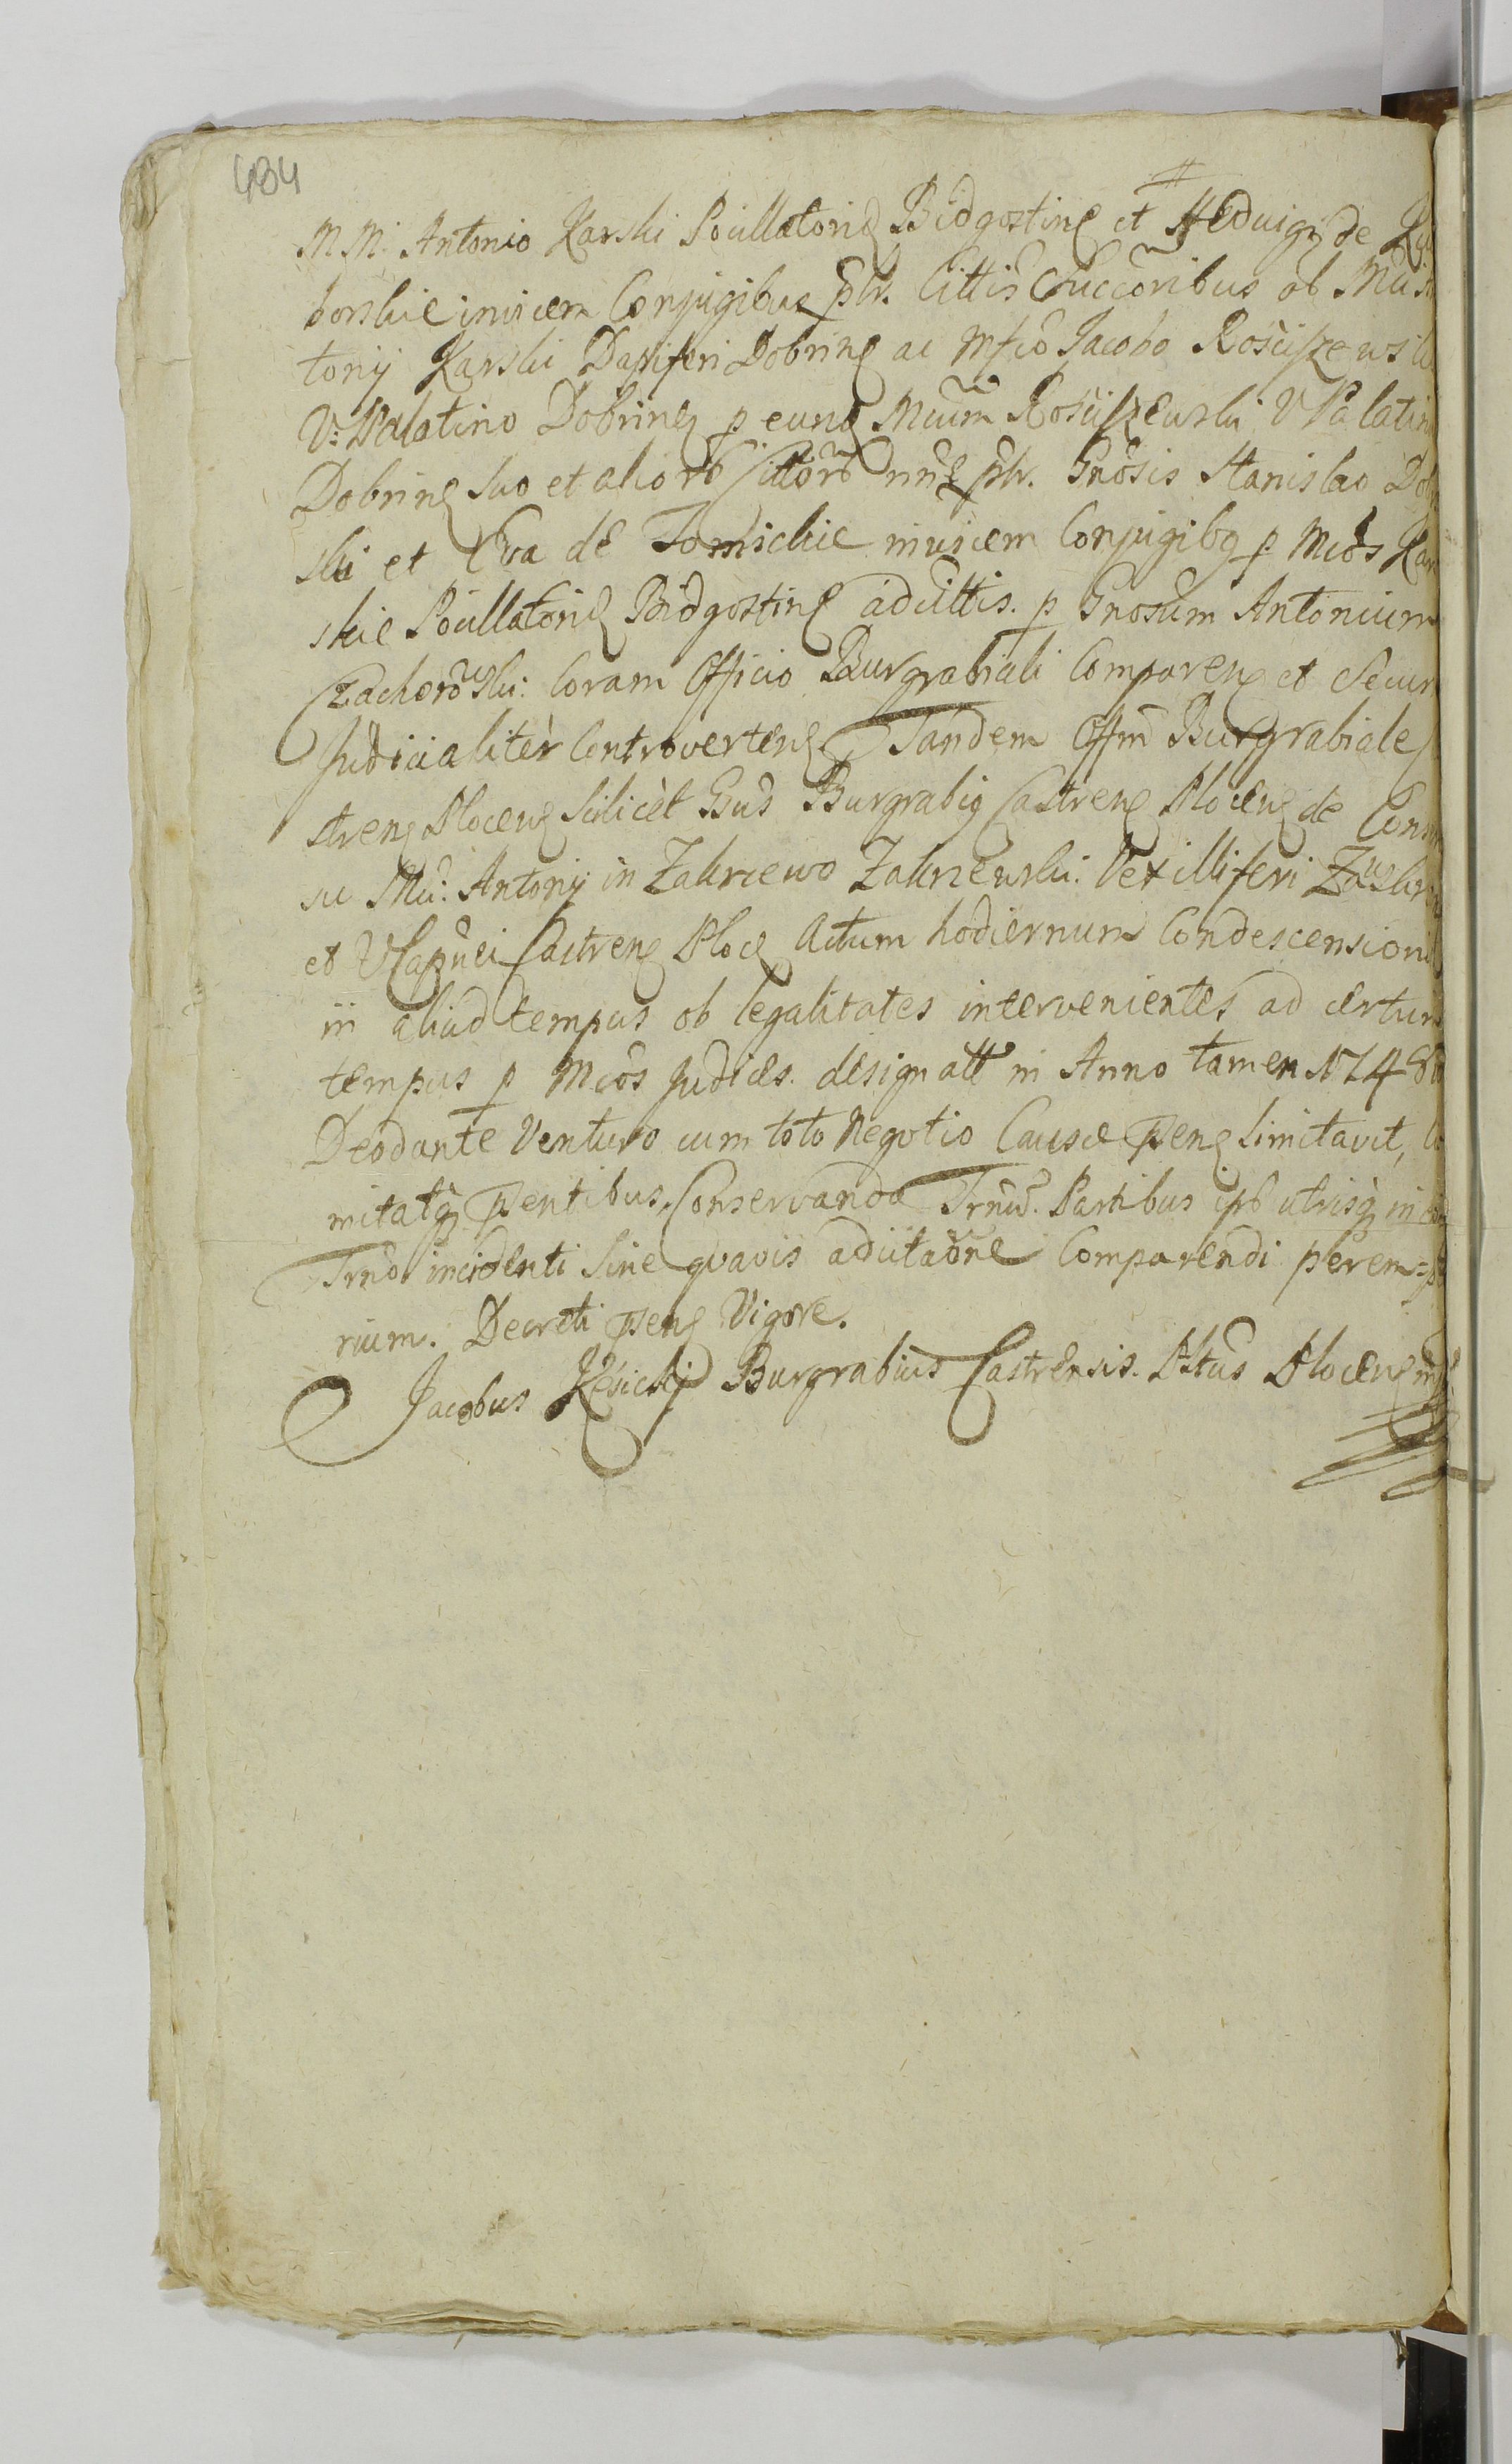 484
M M: Antonio Karski Pocillatoris Bidgostine et Heduigi de
borskie invicem Conjugibus ptr. Cittis Succoribus ob
tonij Karski Dapiferi Dobrine ac Mfco Jacobo Rosciszewski
V: Palatino Dobrine p eund Mcum Rosciszewski V Palatin
Dobrine suo et aliord Cittord nne ptr. Gnosis Stanislao
ski et Eva de Tomickie invicem Conjugibq p Mcos Kar
skie Pocillatoris Bidgostine adcittis. p Gnosum Antonium
Czachorowski: Coram Officio Burgrabiali Comparen et Secum
Judicialiter Controverten Tandem Offm Burgrabiale
stren Plocen Scilicet Gsus Burgrabiq Castren Plocen de Conse
su Mci: Antonij in Zakrzewo Zakrzewski: Vexilliferi Zawskr
et VCapnei Castren Ploc Actum hodiernum Condescension
in aliud tempus ob legalitates intervenientes ad certum
tempus p Mcos Judices. designatt in Anno tamen 1748
Deodante Venturo cum toto Negotio Causæ pen limitavit,
mitatq pentibus, Conservanda Trnis. Partibus ipb utrisq in
Trno incidenti Sine qvavis adcitaone Comparendi perem=p
rium. Decreti pen Vigore.
Jacobus Kesicki Burgrabius Castrensis. Pltus Plocen mp